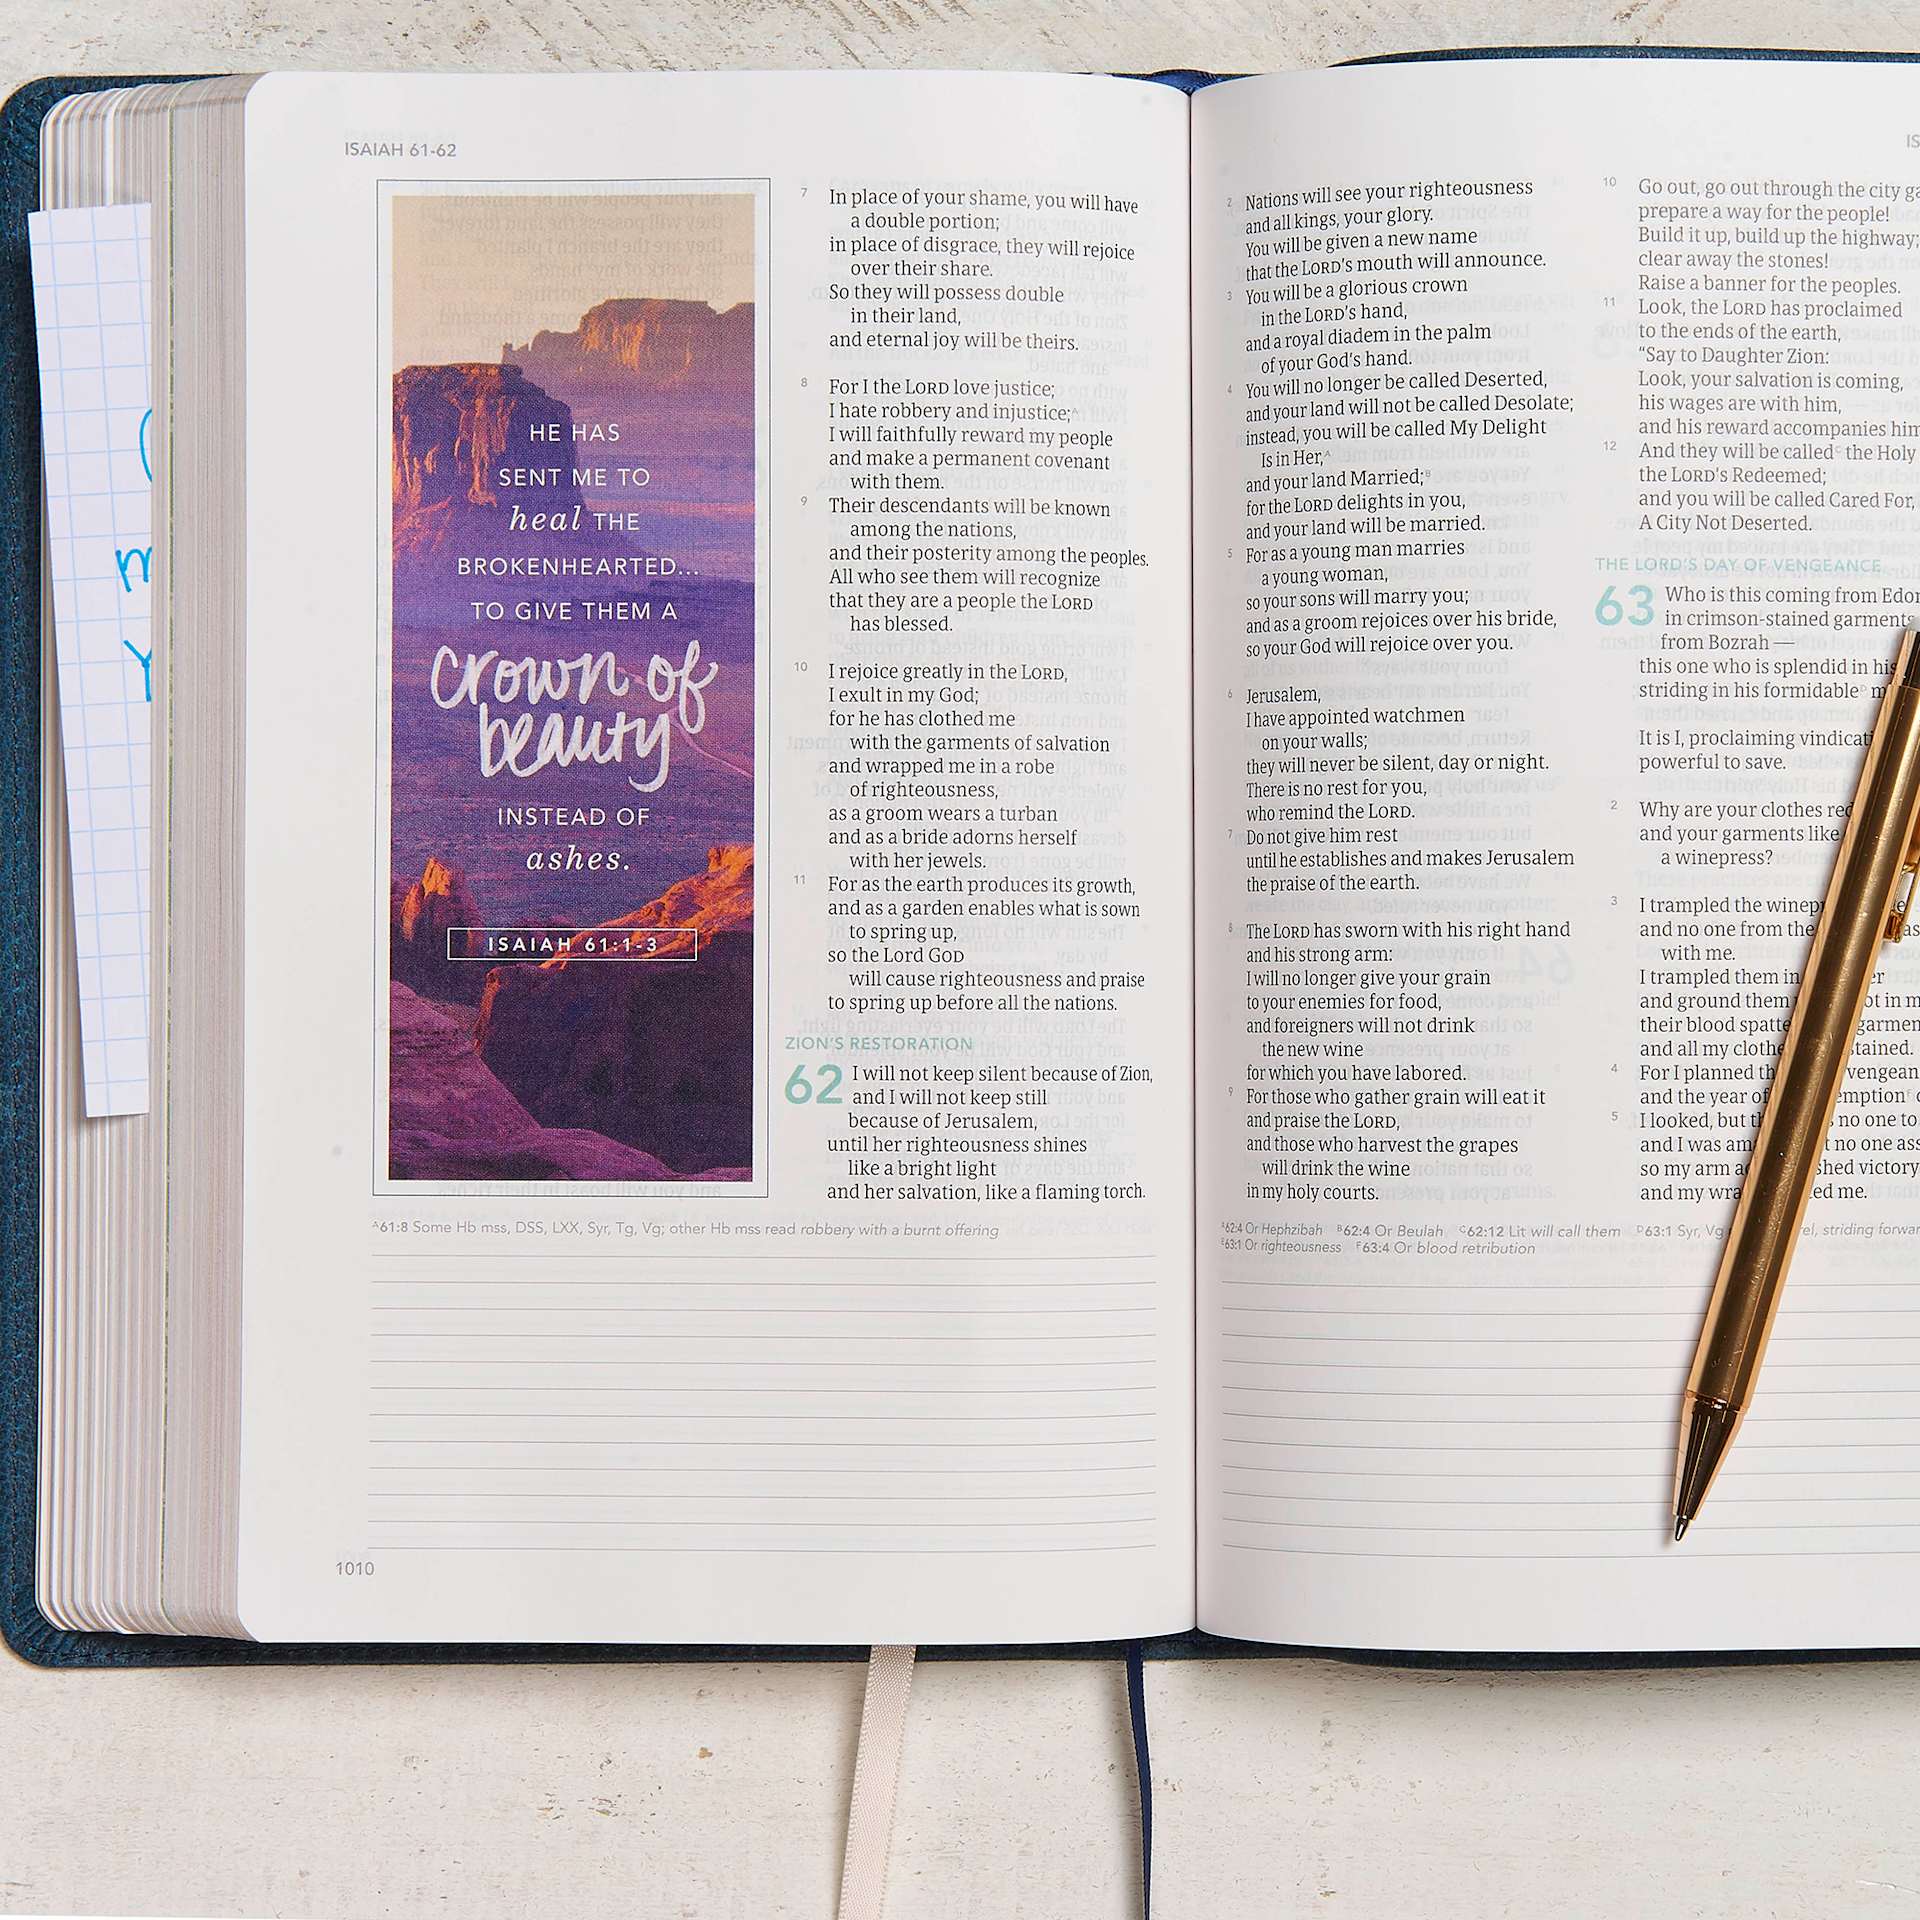 ISAIAH 61-62
HE HAS
SENT ME TO
heal THE
BROKENHEARTED...
TO GIVE THEM A
crown of
beauty
INSTEAD OF
ashes.
ISAIAH 61:1-3
7 In place of your shame, you will have
a double portion;
in place of disgrace, they will rejoice
over their share.
So they will possess double
in their land,
and eternal joy will be theirs.
8 For I the LORD love justice;
I hate robbery and injustice;A
I will faithfully reward my people
and make a permanent covenant
with them.
9 Their descendants will be known
among the nations,
and their posterity among the peoples.
All who see them will recognize
that they are a people the LORD
has blessed.
10 I rejoice greatly in the LORD,
I exult in my God;
for he has clothed me
with the garments of salvation
and wrapped me in a robe
of righteousness,
as a groom wears a turban
and as a bride adorns herself
with her jewels.
11 For as the earth produces its growth,
and as a garden enables what is sown
to spring up,
so the Lord GOD
will cause righteousness and praise
to spring up before all the nations.
ZION'S RESTORATION
62 I will not keep silent because of Zion,
and I will not keep still
because of Jerusalem,
until her righteousness shines
like a bright light
and her salvation, like a flaming torch.
A61:8 Some Hb mss, DSS, LXX, Syr, Tg, Vg; other Hb mss read robbery with a burnt offering
1010
2 Nations will see your righteousness
and all kings, your glory.
You will be given a new name
that the LORD'S mouth will announce.
3 You will be a glorious crown
in the LORD'S hand,
and a royal diadem in the palm
of your God's hand.
4 You will no longer be called Deserted,
and your land will not be called Desolate;
instead, you will be called My Delight
Is in Her,A
and your land Married;B
for the LORD delights in you,
and your land will be married.
5 For as a young man marries
a young woman,
so your sons will marry you;
and as a groom rejoices over his bride,
so your God will rejoice over you.
6 Jerusalem,
I have appointed watchmen
on your walls;
they will never be silent, day or night.
There is no rest for you,
who remind the LORD.
7 Do not give him rest
until he establishes and makes Jerusalem
the praise of the earth.
8 The LORD has sworn with his right hand
and his strong arm:
I will no longer give your grain
to your enemies for food,
and foreigners will not drink
the new wine
for which you have labored.
9 For those who gather grain will eat it
and praise the LORD,
and those who harvest the grapes
will drink the wine
in my holy courts.
10 Go out, go out through the city
prepare a way for the people!
Build it up, build up the highway;
clear away the stones!
Raise a banner for the peoples.
11 Look, the LORD has proclaimed
to the ends of the earth,
"Say to Daughter Zion:
Look, your salvation is coming,
his wages are with him,
and his reward accompanies him
12 And they will be calledC the Holy
the LORD'S Redeemed;
and you will be called Cared For,
A City Not Deserted.
THE LORD'S DAY OF VENGEANCE
63 Who is this coming from
in crimson-stained garments
from Bozrah —
this one who is splendid in his
striding in his formidableD
It is I, proclaiming
powerful to save.
2 Why are your clothes
and your garments like
a winepress?
3 I trampled the
and no one from the
with me.
I trampled them in
and ground them in
their blood
and all my stained.
4 For I planned
and the year of
5 I looked, but no one to
and I was no one
so my arm victory
and my me.
A62:4 Or Hephzibah B62:4 Or Beulah C62:12 Lit will call them D63:1 Syr, Vg striding
E63:1 Or righteousness F63:4 Or blood retribution